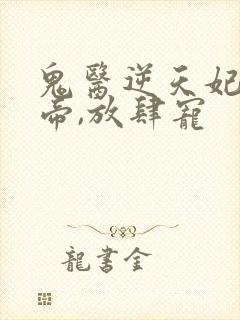 鬼醫逆天妃
帝,放肆寵
龍書金